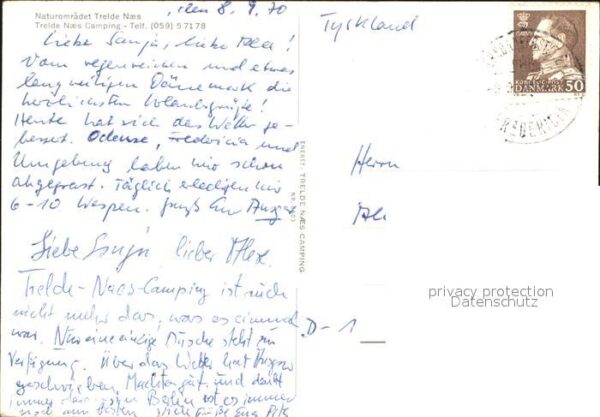 Naturområdet Trelde Næs
Trelde Næs Camping - Telf. (059) 57178
den 8. 9. 70
Liebe Sonja, lieber Alex!
Vom regenreichen und etwas
langweiligen Dänemark die
herzlichsten Urlaubsgrüße!
Heute hat sich das Wetter ge-
bessert. Odense, Fredericia und
Umgebung haben wir schon
abgegrast. Täglich erledigen wir
6-10 Wespen. Gruß Eu
Liebe Sonja, lieber Alex.
Trelde-Naes-Camping ist auch
nicht mehr das, was es einmal
war. Nur eine einzige Dusche steht zur
Verfügung. Über das Wetter hat
geschrieben. Macht's gut und denkt
immer daran, Berlin ist es immer
noch am besten
ENERET: TRELDE NÆS CAMPING
Tyskland
DANMARK 50
FREDERICIA
Herrn
Al
D-1
privacy protection
Datenschutz